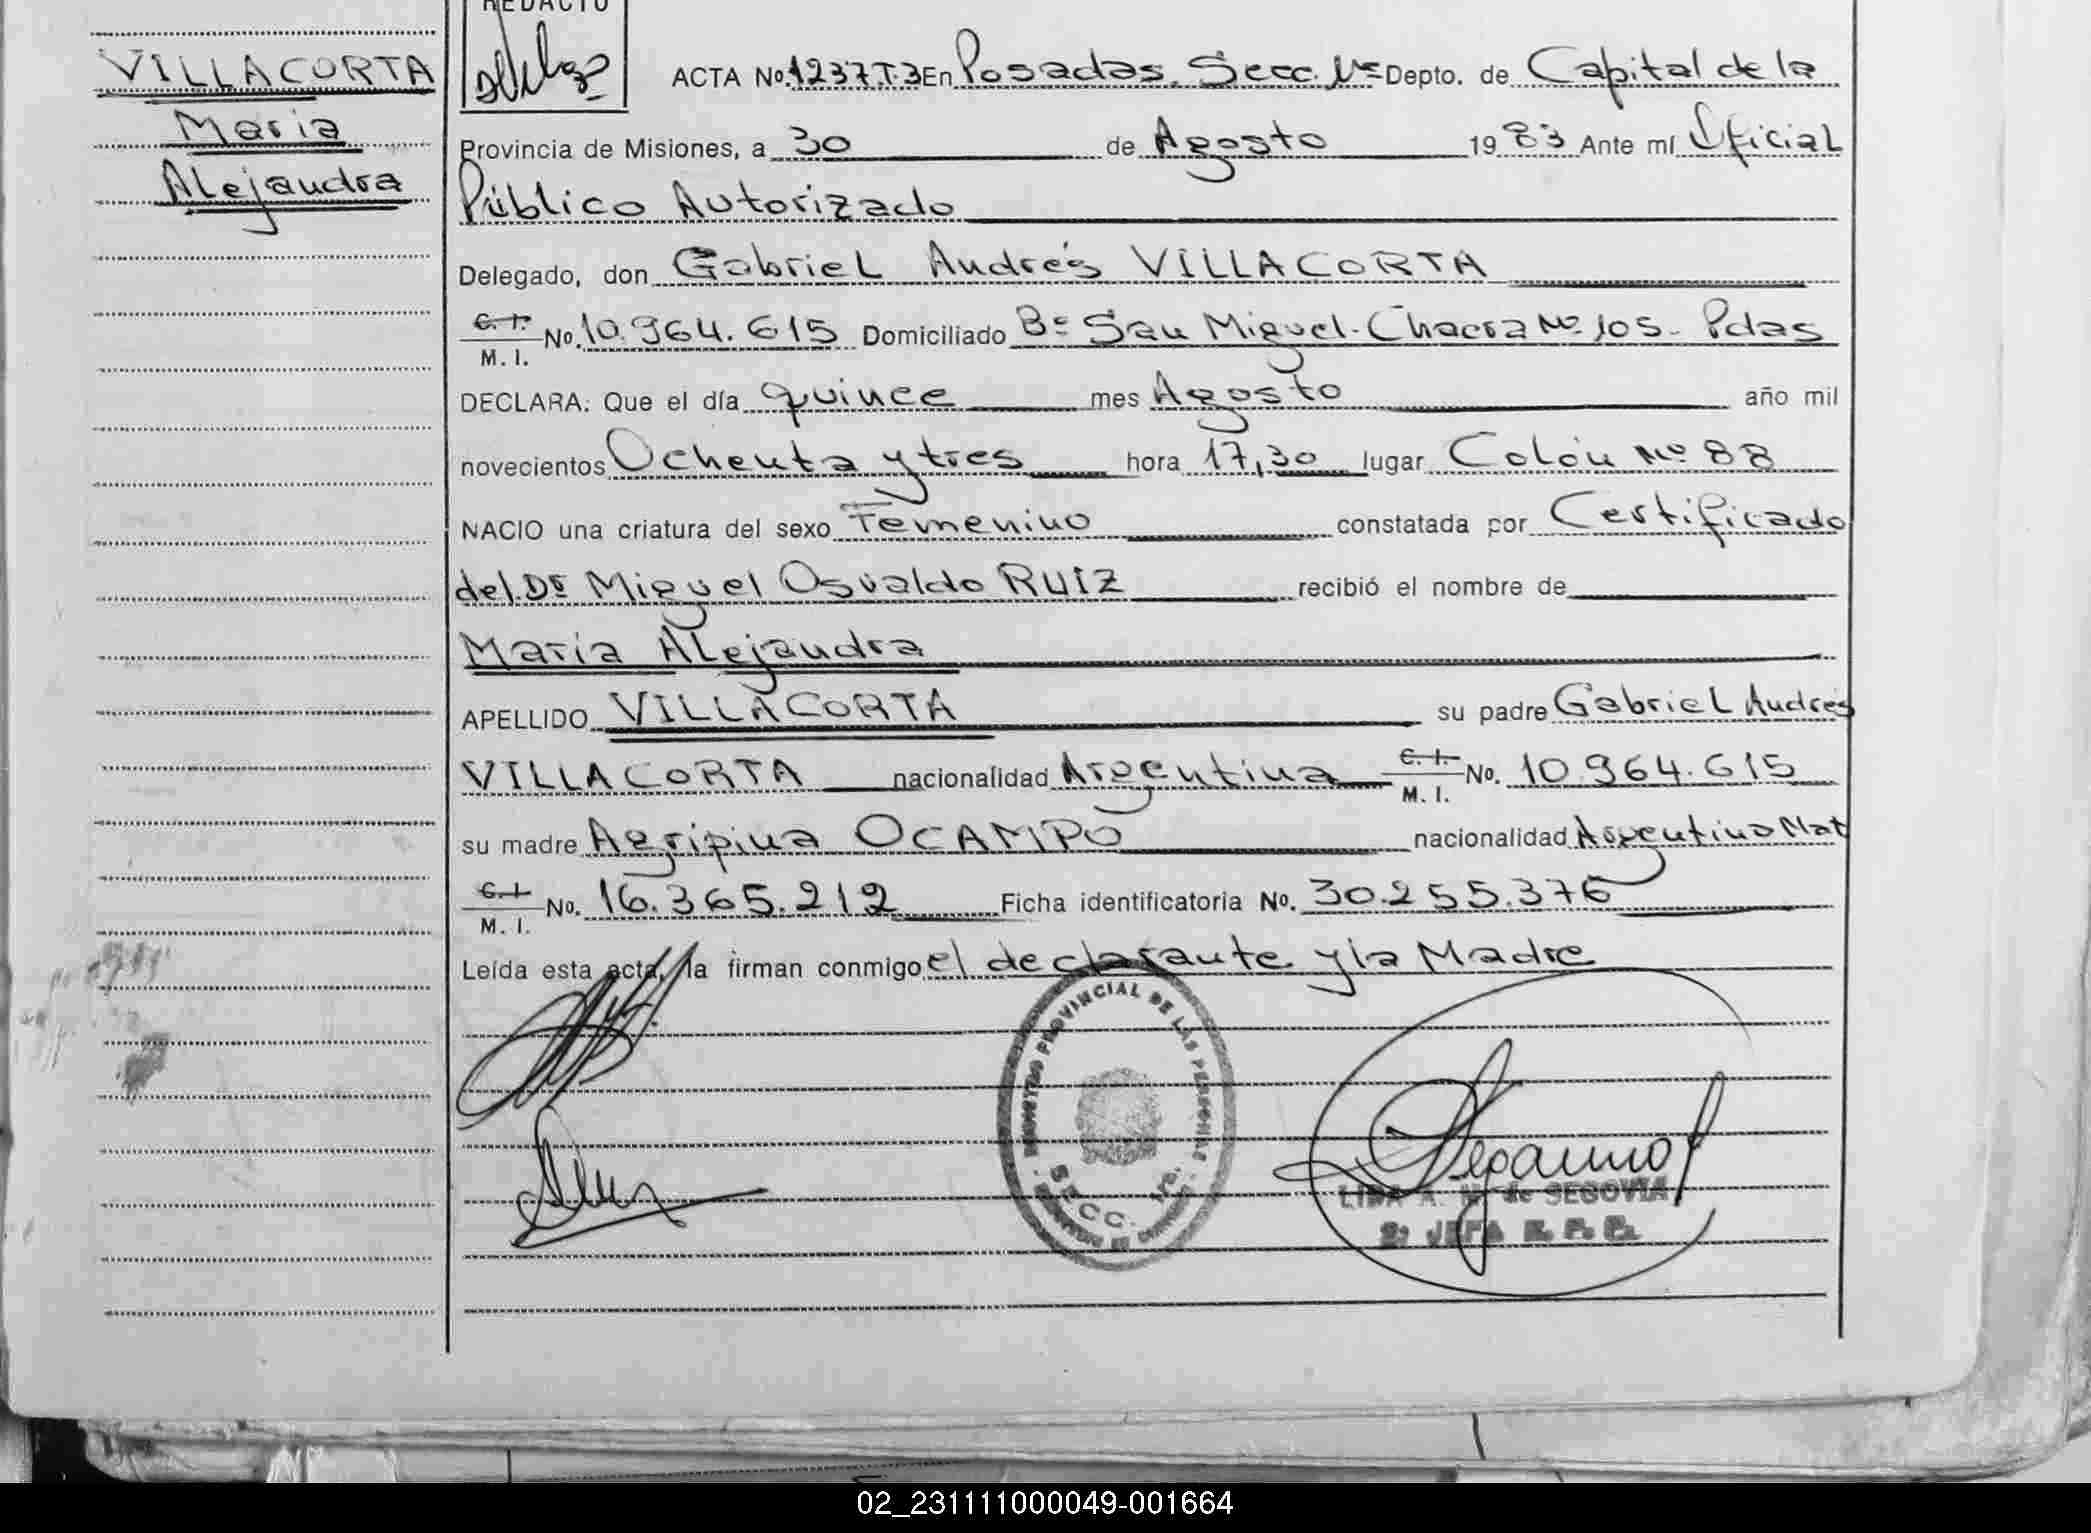 REDACTO
VILLACORTA
Maria
Alejandra
ACTA No. 1237 T.3 En Posadas. Secc. 1ª Depto. de Capital de la
Provincia de Misiones, a 30 de Agosto 1983 Ante mí Oficial
Público Autorizado
Delegado, don Gabriel Andrés VILLACORTA
C. I. M. I. No. 10.964.615 Domiciliado Bº San Miguel-Chacra Nº 105- Pdas
DECLARA: Que el día quince mes Agosto año mil
novecientos Ochenta y tres hora 17,30 lugar Colón Nº 88
NACIO una criatura del sexo Femenino constatada por Certificado
del Dr Miguel Osvaldo RUIZ recibió el nombre de
Maria Alejandra
APELLIDO VILLACORTA su padre Gabriel Andrés
VILLACORTA nacionalidad Argentina C. I. M. I. No. 10.964.615
su madre Agripina OCAMPO nacionalidad Argentina Mat
C. I. M. I. No. 16.365.212 Ficha identificatoria No. 30.255.376
Leída esta acta, la firman conmigo el declarante y la Madre
REGISTRO PROVINCIAL DE LAS PERSONAS
SECC. 1ra.
LIDA A. N. de SEGOVIA
2ª JEFA R. P. P.
02_231111000049-001664